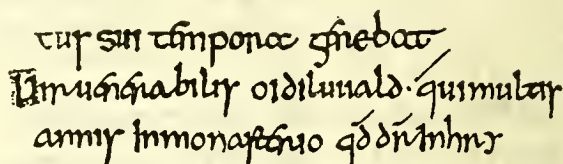 tus sui tempora gerebat
Uir uenerabilis oidiluuald· qui multis
annis Inmonasterio qd́ dr̄ Inhry